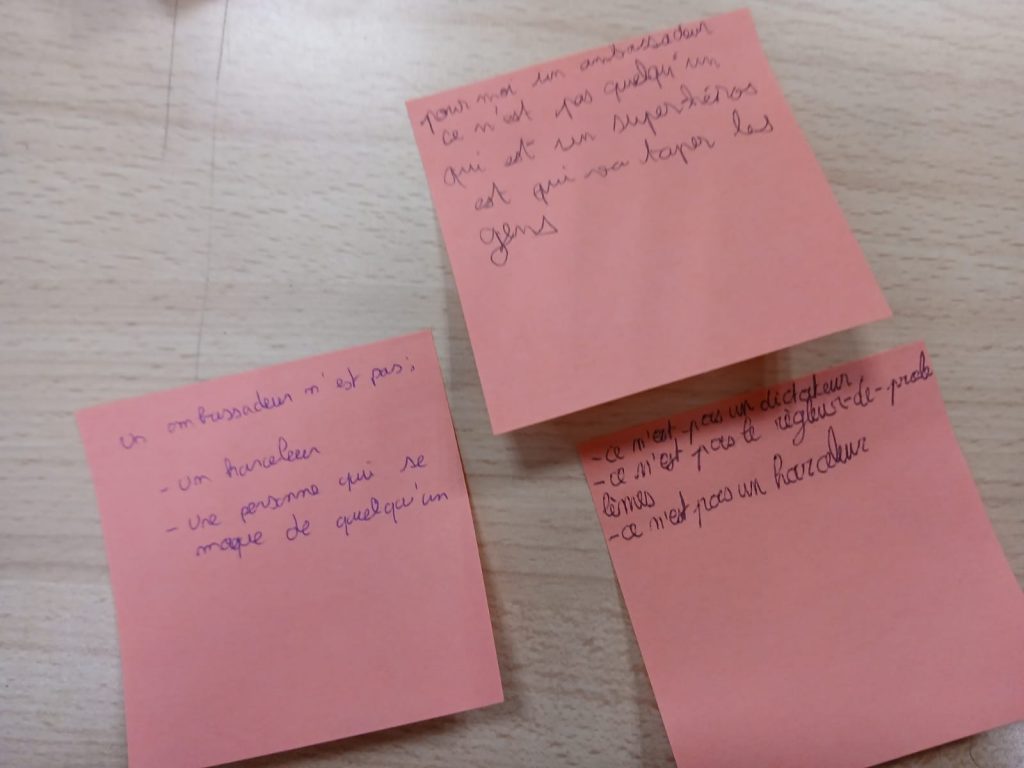 pour moi un ambassadeur
ce n'est pas quelqu'un
qui est un superhéros
est qui va taper les
gens
un ambassadeur n'est pas :
- un harceleur
- une personne qui se
moque de quelqu'un
- ce n'est pas un dictateur
- ce n'est pas le règleur-de-prob
lèmes
- ce n'est pas un harceleur